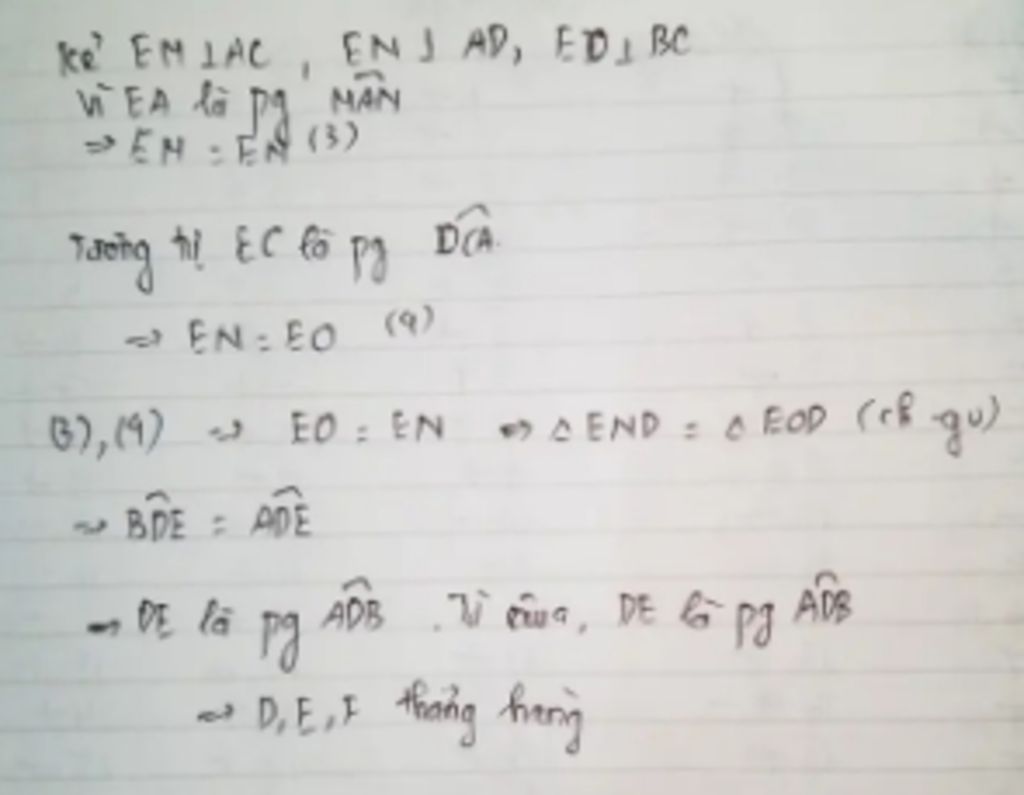 Kẻ EM ⊥ AC, EN ⊥ AD, EO ⊥ BC
Vì EA là pg MAN^
⇒ EM = EN (3)
Tương tự EC là pg DCA^
⇒ EN = EO (4)
(3), (4) ⇒ EO = EN ⇔ △END = △EOD (ch - gv)
⇒ BDE^ = ADE^
⇒ DE là pg ADB^. Vì DE là pg ADB^
⇒ D, E, F thẳng hàng